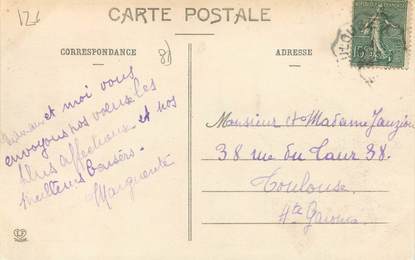 126
CARTE POSTALE
CORRESPONDANCE
81
ADRESSE
et moi vous
envoyons nos vœux les
plus affectueux et nos
meilleurs baisers.
Marguerite
Monsieur et Madame Jauzion
38 rue du Taur 38.
Toulouse.
Hte Garonne